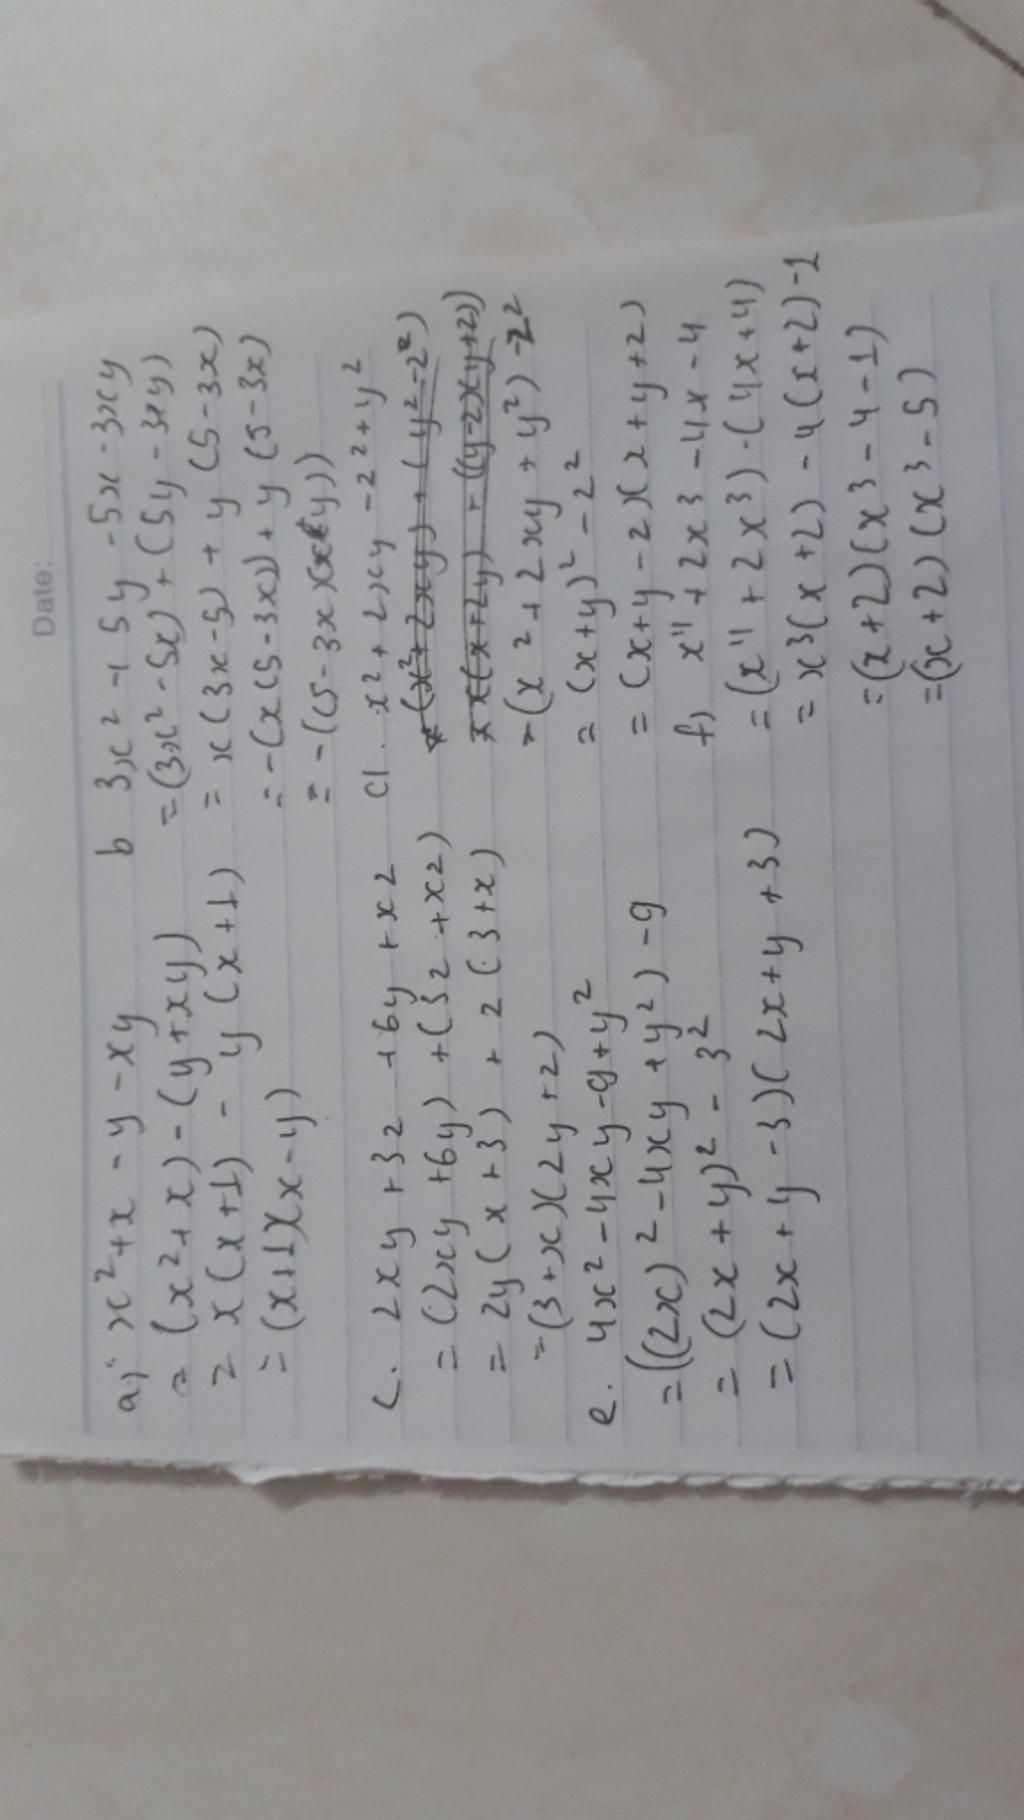 Date:
a, x²+x - y - xy
= (x²+x) - (y+xy)
= x(x+1) - y(x+1)
= (x+1)(x-y)
b 3x² + 5y - 5x - 3xy
= (3x² - 5x) + (5y - 3xy)
= x(3x-5) + y(5-3x)
= -(x(5-3x)) + y(5-3x)
= -(5-3x)(x y))
c. 2xy + 3z + 6y + xz
= (2xy + 6y) + (3z + xz)
= 2y(x+3) + z(3+x)
= (3+x)(2y+z)
d. x² + 2xy - z² + y²
(x²+2xy) + (y²-z²)
x(x+2y) - ((y-z)(y+z))
= (x² + 2xy + y²) - z²
= (x+y)² - z²
= (x+y-z)(x+y+z)
e. 4x² - 4xy - 9 + y²
= ((2x)² - 4xy + y²) - 9
= (2x+y)² - 3²
= (2x+y-3)(2x+y+3)
f, x⁴ + 2x3 - 4x - 4
= (x⁴ + 2x³) - (4x+4)
= x³(x+2) - 4(x+2) - 1
= (x+2)(x³ - 4 - 1)
= (x+2)(x³ - 5)